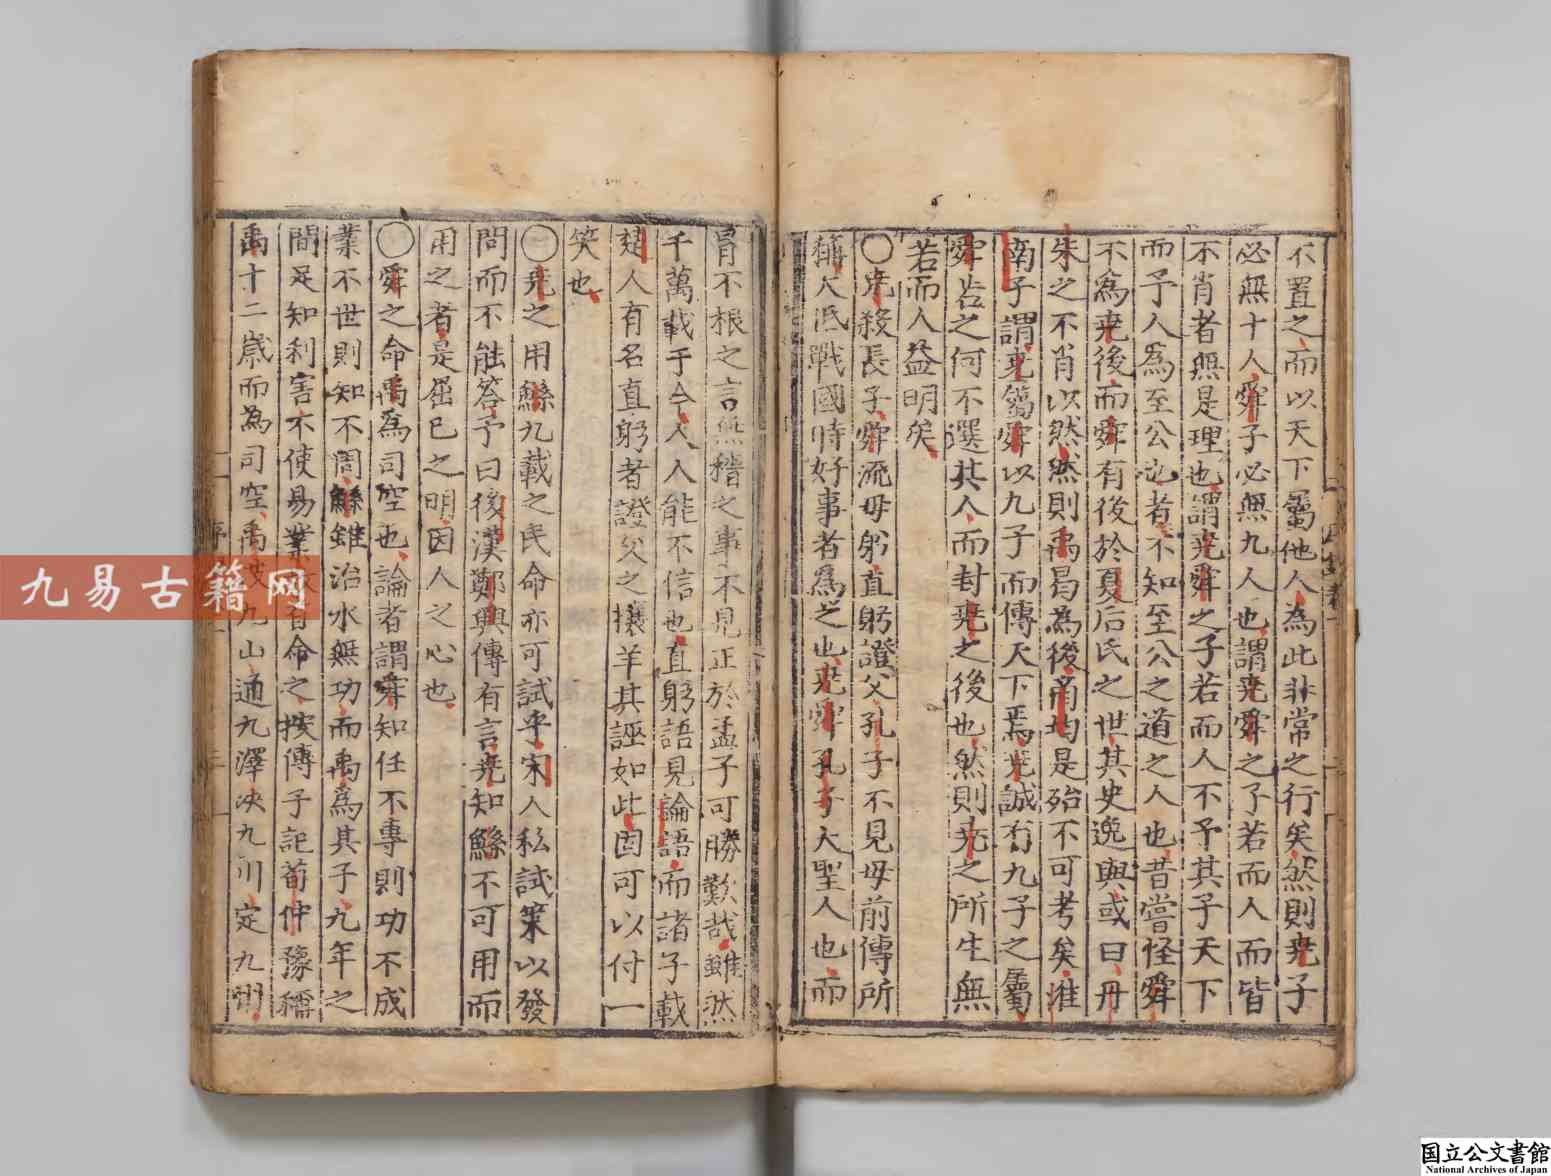 不置之而以天下屬他人為此非常之行矣然則堯子
必無十人舜子必無九人也謂堯舜之子若而人而皆
不肖者無是理也謂堯舜之子若而人不予其子天下
而予人為至公也者不知至公之道之人也昔嘗怪舜
不為堯後而舜有後於夏后氏之世其史逸與或曰丹
朱之不肖以然然則禹曷為後商均是殆不可考矣淮
南子謂堯篤舜以九子而傳天下焉堯誠有九子之屬
舜占之何不選其人而封堯之後也然則堯之所生無
若而人益明矣
〇堯殺長子舜流母躬直躬證父孔子不見母前傳所
稱大抵戰國時好事者為之也堯舜孔子大聖人也而
冐不根之言無稽之事不見正於孟子可勝歎哉雖然
千萬載于今人人能不信也直躬語見論語而諸子載
楚人有名直躬者證父之攘羊其誣如此固可以付一
笑也
〇堯之用鯀九載之民命亦可試乎宋人私試策以發
問而不能答予曰後漢鄭興傳有言堯知鯀不可用而
用之者是屈己之明因人之心也
〇舜之命禹為司空也論者謂舜知任不專則功不成
業不世則知不周鯀雖治水無功而禹為其子九年之
間足知利害不使易業故首命之按傳子記荀仲豫稱
禹十二歲而為司空禹陂九山通九澤決九川定九州
序
三
九易古籍网
国立公文書館
National Archives of Japan